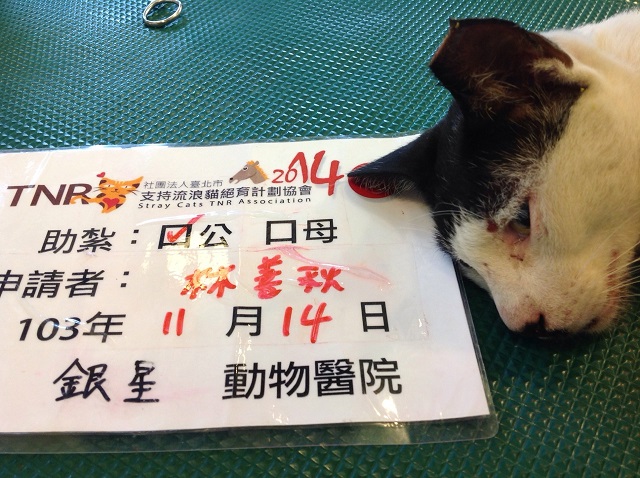 TNR 社團法人臺北市 2014
支持流浪貓絕育計劃協會
Stray Cats TNR Association
助紮：☑公 口母
申請者：林善秋
103年 11 月 14 日
銀星 動物醫院